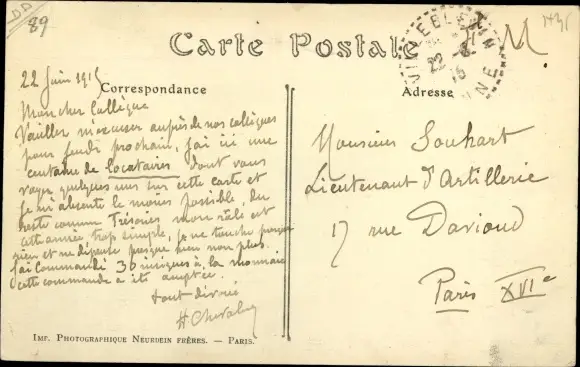 DD
89
Carte Postale
F M
VILLEBLEVIN
22
15
YONNE
Correspondance
Adresse
22 Juin 1915
Mon cher Collègue
Veuillez m'excuser auprès de nos collègues
pour jeudi prochain, j'ai ici une
centaine de locataires dont vous
voyez quelques uns sur cette carte et
je m'absente le moins possible, du
reste comme Trésorier mon rôle est
cette année trop simple, je ne touche presque
rien et ne dépense presque rien non plus.
J'ai commandé 30 insignes à la monnaie
cette commande a été acceptée.
tout dévoué
H Chevalier
Monsieur Souhart
Lieutenant d'Artillerie
17 rue Davioud
Paris XVIe
IMP. PHOTOGRAPHIQUE NEURDEIN FRÈRES. — PARIS.